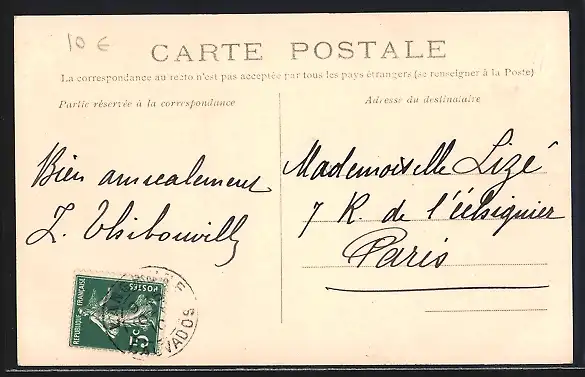 10 €
CARTE POSTALE
La correspondance au recto n'est pas acceptée par tous les pays étrangers (se renseigner à la Poste)
Partie réservée à la correspondance
Adresse du destinataire
Bien amicalement
Z. Thibouville
Mademoiselle Lizé
7 R. de l'Échiquier
Paris
REPUBLIQUE FRANÇAISE
POSTES
5c
CALVADOS